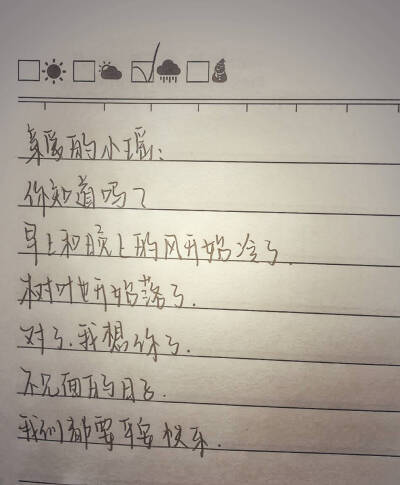 亲爱的小瑶:
你知道吗?
早上和晚上的风开始冷了.
树叶也开始落了.
对了.我想你了.
不见面的日子.
我们都要平安快乐.